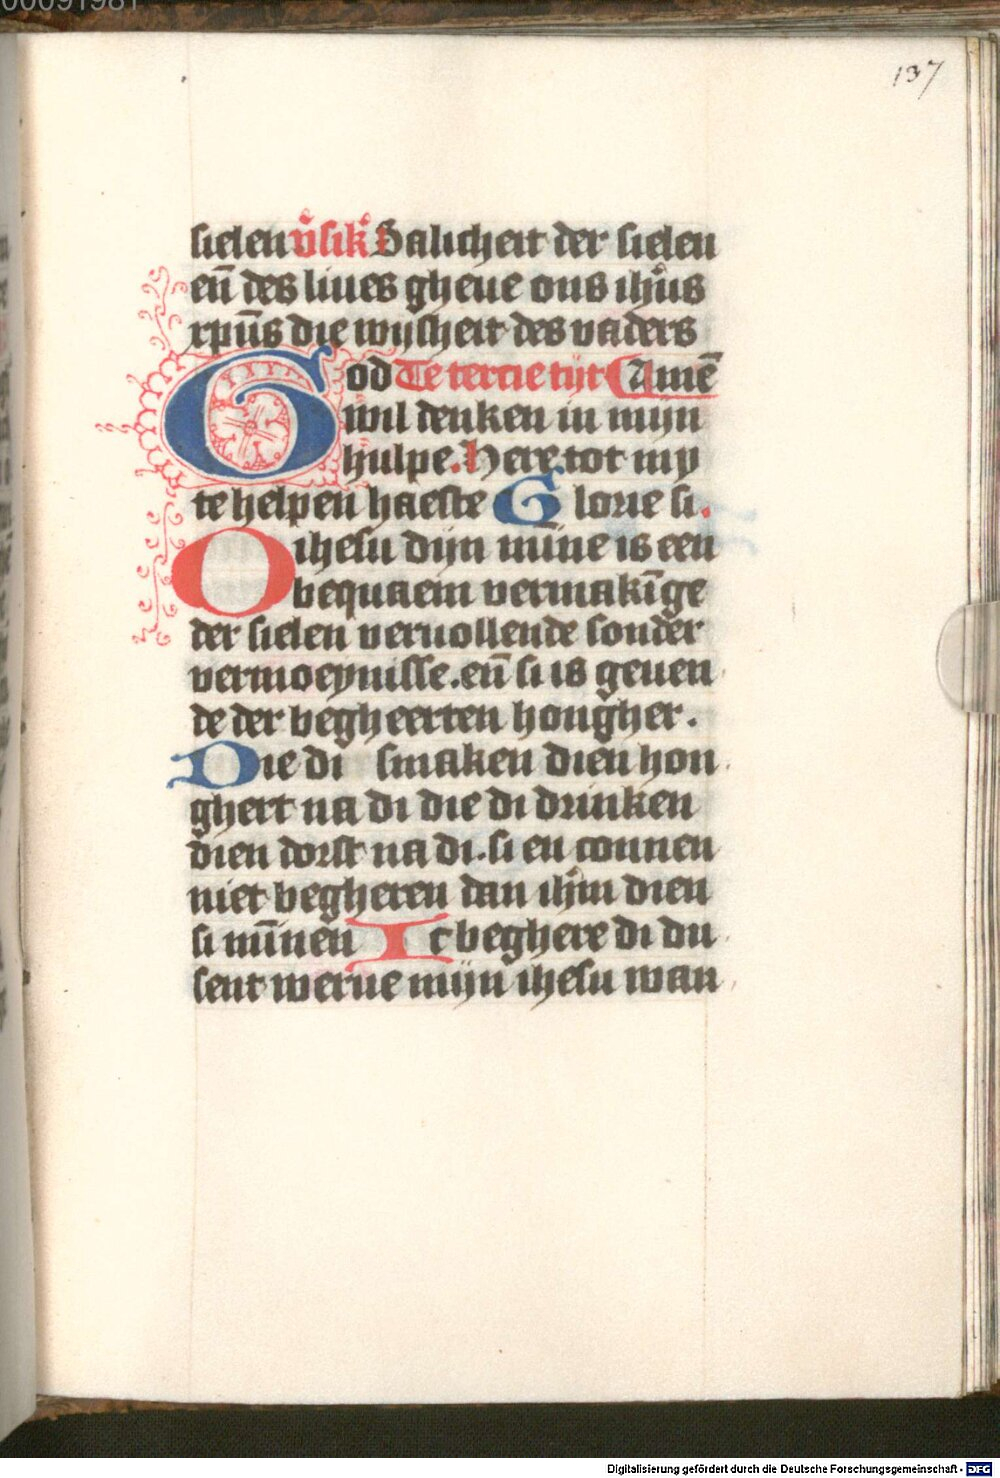 00091981
137
sielen v̄sik̄l Salicheit der sielen
en̄ des liues gheue ons ihūs
xpūs die wijsheit des vaders
God Te tercie tijt Amē
wil denken in mijn
hulpe. Here tot my
te helpen haeste Glorie si.
O ihesu dijn mīne is een
bequaem vermakīge
der sielen veruollende sonder
vermoeynisse. en̄ si is geuen
de der begheerten hongher.
Die di smaken dien hon
ghert na di die di drinken
dien dorst na di. si en connen
niet begheren dan ihm̄ dien
si mīnen Ic beghere di du
sent werue mijn ihesu wan
Digitalisierung gefördert durch die Deutsche Forschungsgemeinschaft - DFG